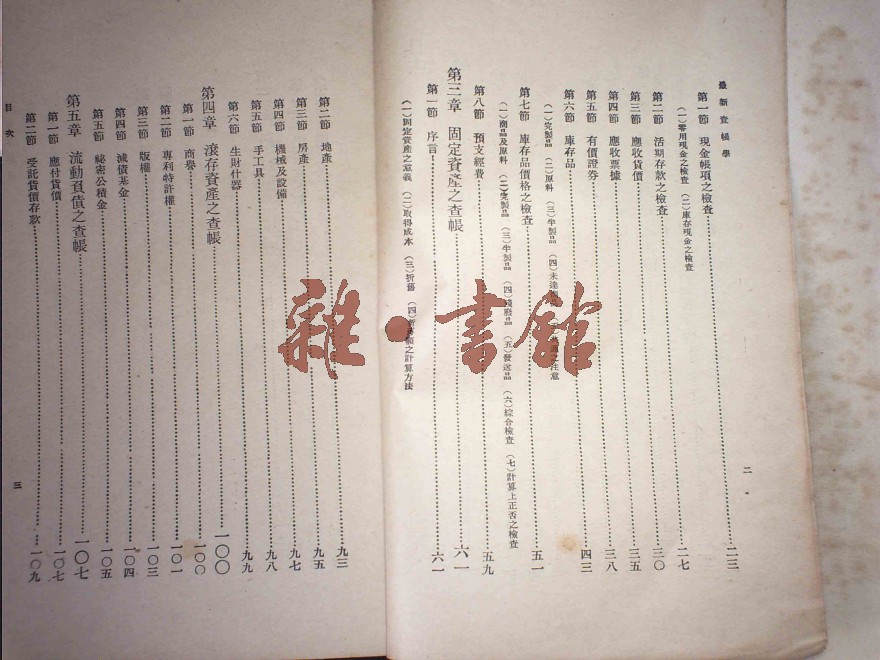 最新查帳學
二
第一節 現金帳項之檢查 二三
(一)零用現金之檢查 (二)庫存現金之檢查
第二節 活期存款之檢查 二七
第三節 應收貨價 三〇
第四節 應收票據 三五
第五節 有價證券 三八
第六節 庫存品 四三
(一)完製品 (二)原料 (三)半製品 (四)未達 注意
第七節 庫存品價格之檢查 五一
(一)商品及原料 (二)完製品 (三)半製品 (四)殘廢品 (五)發送品 (六)綜合檢查 (七)計算上正否之檢查
第八節 預支經費 五九
第三章 固定資產之查帳 六一
第一節 序言 六一
(一)固定資產之意義 (二)取得成本 (三)折舊 (四)折舊額之計算方法
第二節 地產 九三
第三節 房產 九五
第四節 機械及設備 九七
第五節 手工具 九八
第六節 生財什器 九九
第四章 滾存資產之查帳 一〇〇
第一節 商譽 一〇〇
第二節 專利特許權 一〇一
第三節 版權 一〇三
第四節 減債基金 一〇四
第五節 祕密公積金 一〇五
第五章 流動負債之查帳 一〇七
第一節 應付貨價 一〇七
第二節 受託貨價存款 一〇九
目次
三
雜·書館